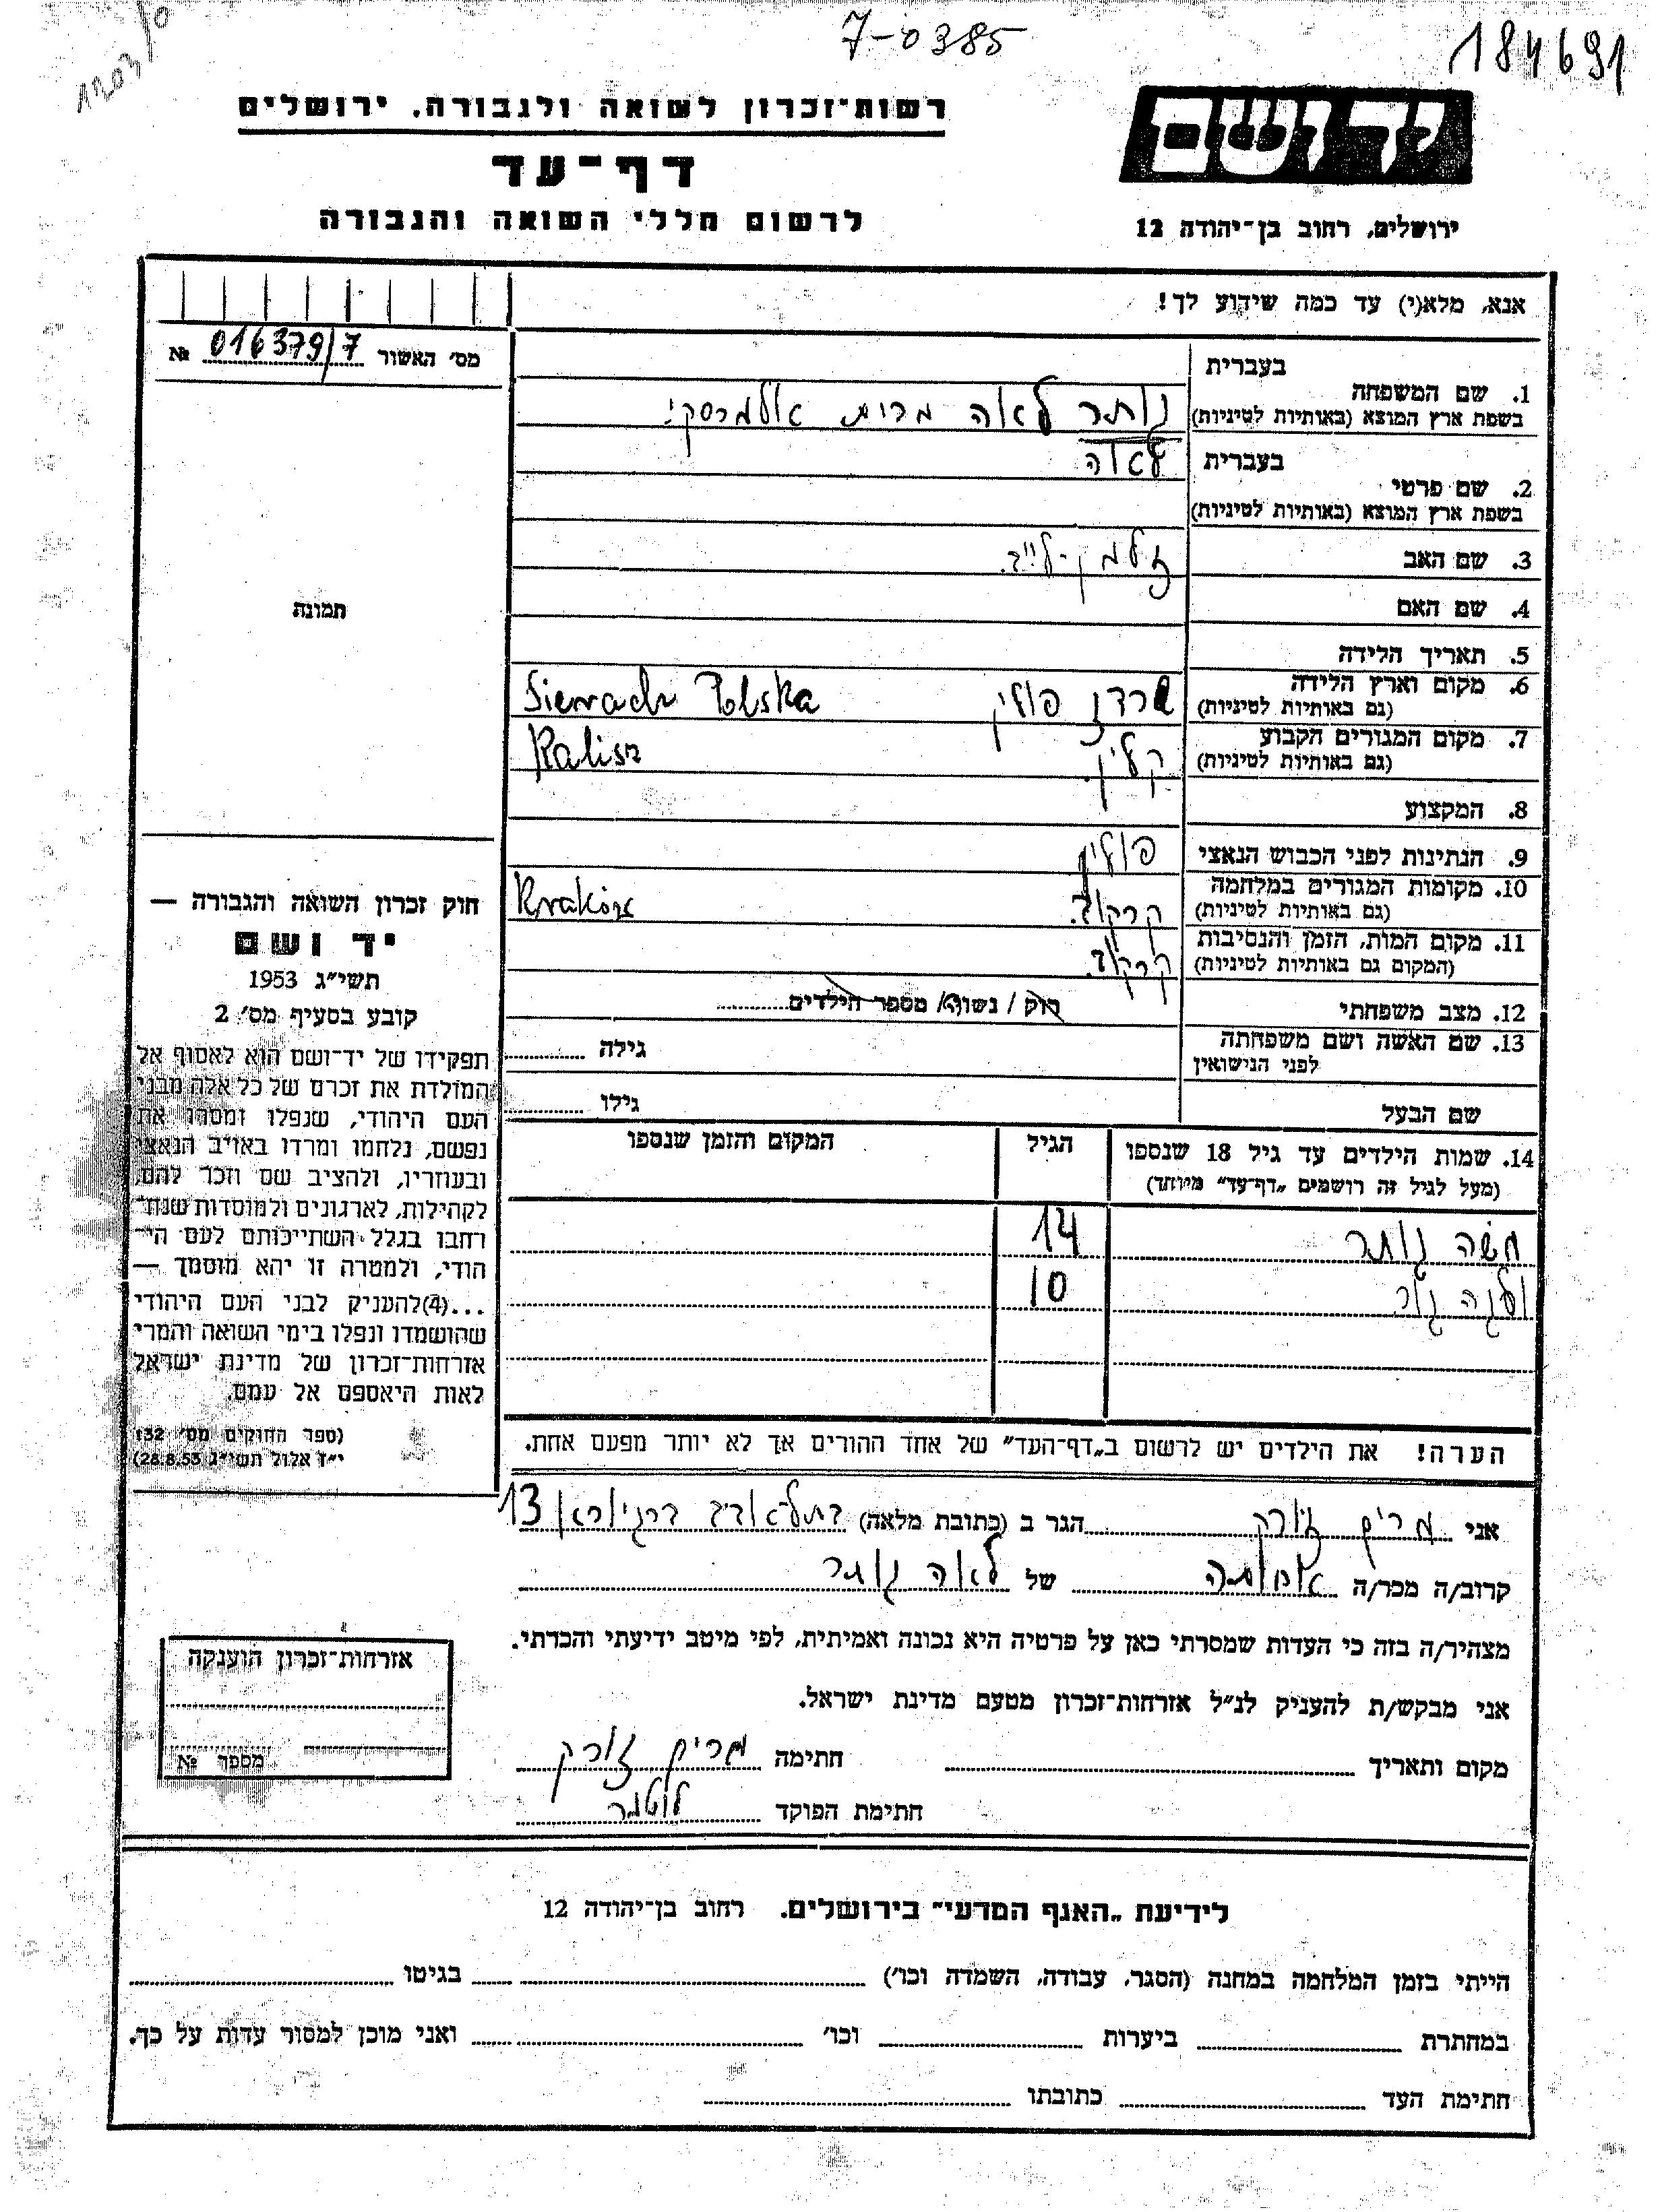 7-0385
184691
1203/0
רשות־זכרון לשואה ולגבורה, ירושלים
דף־עד
לרשום חללי השואה והגבורה
יד ושם
ירושלים, רחוב בן־יהודה 12
אנא, מלא(י) עד כמה שידוע לך!
מס׳ האשור 016379/7 №
1. שם המשפחה
בעברית
בשפת ארץ המוצא (באותיות לטיניות)
לאה מבית
2. שם פרטי
בעברית לאה
בשפת ארץ המוצא (באותיות לטיניות)
3. שם האב זלמן־לייב
4. שם האם
5. תאריך הלידה
6. מקום וארץ הלידה
(גם באותיות לטיניות)
שרדז פולין Sieradz Polska
7. מקום המגורים הקבוע
(גם באותיות לטיניות)
Kalisz
8. המקצוע
9. הנתינות לפני הכבוש הנאצי פולין
10. מקומות המגורים במלחמה
(גם באותיות לטיניות)
קרקוב. Kraków
11. מקום המות, הזמן והנסיבות
(המקום גם באותיות לטיניות)
קרקוב.
12. מצב משפחתי רוק / נשוי/ה מספר הילדים
13. שם האשה ושם משפחתה
לפני הנישואין
גילה
שם הבעל גילו
14. שמות הילדים עד גיל 18 שנספו
(מעל לגיל זה רושמים „דף־עד״ מיוחד)
הגיל
המקום והזמן שנספו
משה 14
10
הערה! את הילדים יש לרשום ב„דף־העד״ של אחד ההורים אך לא יותר מפעם אחת.
תמונה
חוק זכרון השואה והגבורה —
יד ושם
תשי״ג 1953
קובע בסעיף מס׳ 2
תפקידו של יד־ושם הוא לאסוף אל
המולדת את זכרם של כל אלה מבני
העם היהודי, שנפלו ומסרו את
נפשם, נלחמו ומרדו באויב הנאצי
ובעוזריו, ולהציב שם וזכר להם,
לקהילות, לארגונים ולמוסדות שנח־
רבו בגלל השתייכותם לעם הי־
הודי, ולמטרה זו יהא מוסמך —
...(4)להעניק לבני העם היהודי
שהושמדו ונפלו בימי השואה והמרי
אזרחות־זכרון של מדינת ישראל
לאות היאספם אל עמם.
(ספר החוקים מס׳ 132
י״ז אלול תשי״ג 28.8.53)
אני מרים זורק הגר ב (כתובת מלאה) בתל־אביב 13
קרוב/ה מכר/ה אחותה של לאה
מצהיר/ה בזה כי העדות שמסרתי כאן על פרטיה היא נכונה ואמיתית, לפי מיטב ידיעתי והכרתי.
אני מבקש/ת להעניק לנ״ל אזרחות־זכרון מטעם מדינת ישראל.
מקום ותאריך חתימה מרים זורק
חתימת הפוקד
אזרחות־זכרון הוענקה
מספר №
לידיעת „האגף המדעי״ בירושלים. רחוב בן־יהודה 12
הייתי בזמן המלחמה במחנה (הסגר, עבודה, השמדה וכו׳) בגיטו
במחתרת ביערות וכו׳ ואני מוכן למסור עדות על כך.
חתימת העד כתובתו